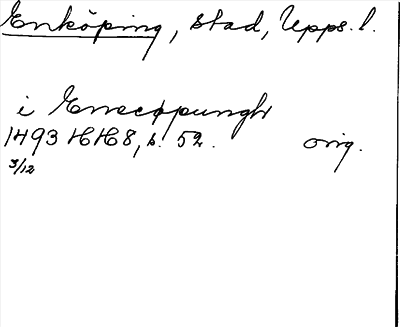 Enköping, stad, Upps. l.
i Enecöpungh
1493 HH8, s. 52. orig.
3/12